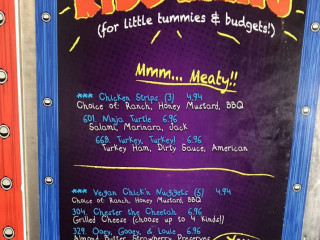 (for little tummies & budgets!)
Mmm... Meaty!!
*** Chicken Strips (3) 4.94
Choice of: Ranch, Honey Mustard, BBQ
601. Ninja Turtle 6.96
Salami, Marinara, Jack
668. Turkey, Turkey! 6.96
Turkey Ham, Dirty Sauce, American
*** Vegan Chick'n Nuggets (5) 4.94
Choice of: Ranch, Honey Mustard, BBQ
304. Chester the Cheetah 6.96
Grilled Cheese (choose up to 4 kinds!)
329. Ooey, Gooey, & Louie 6.96
Almond Butter, Strawberry Preserves